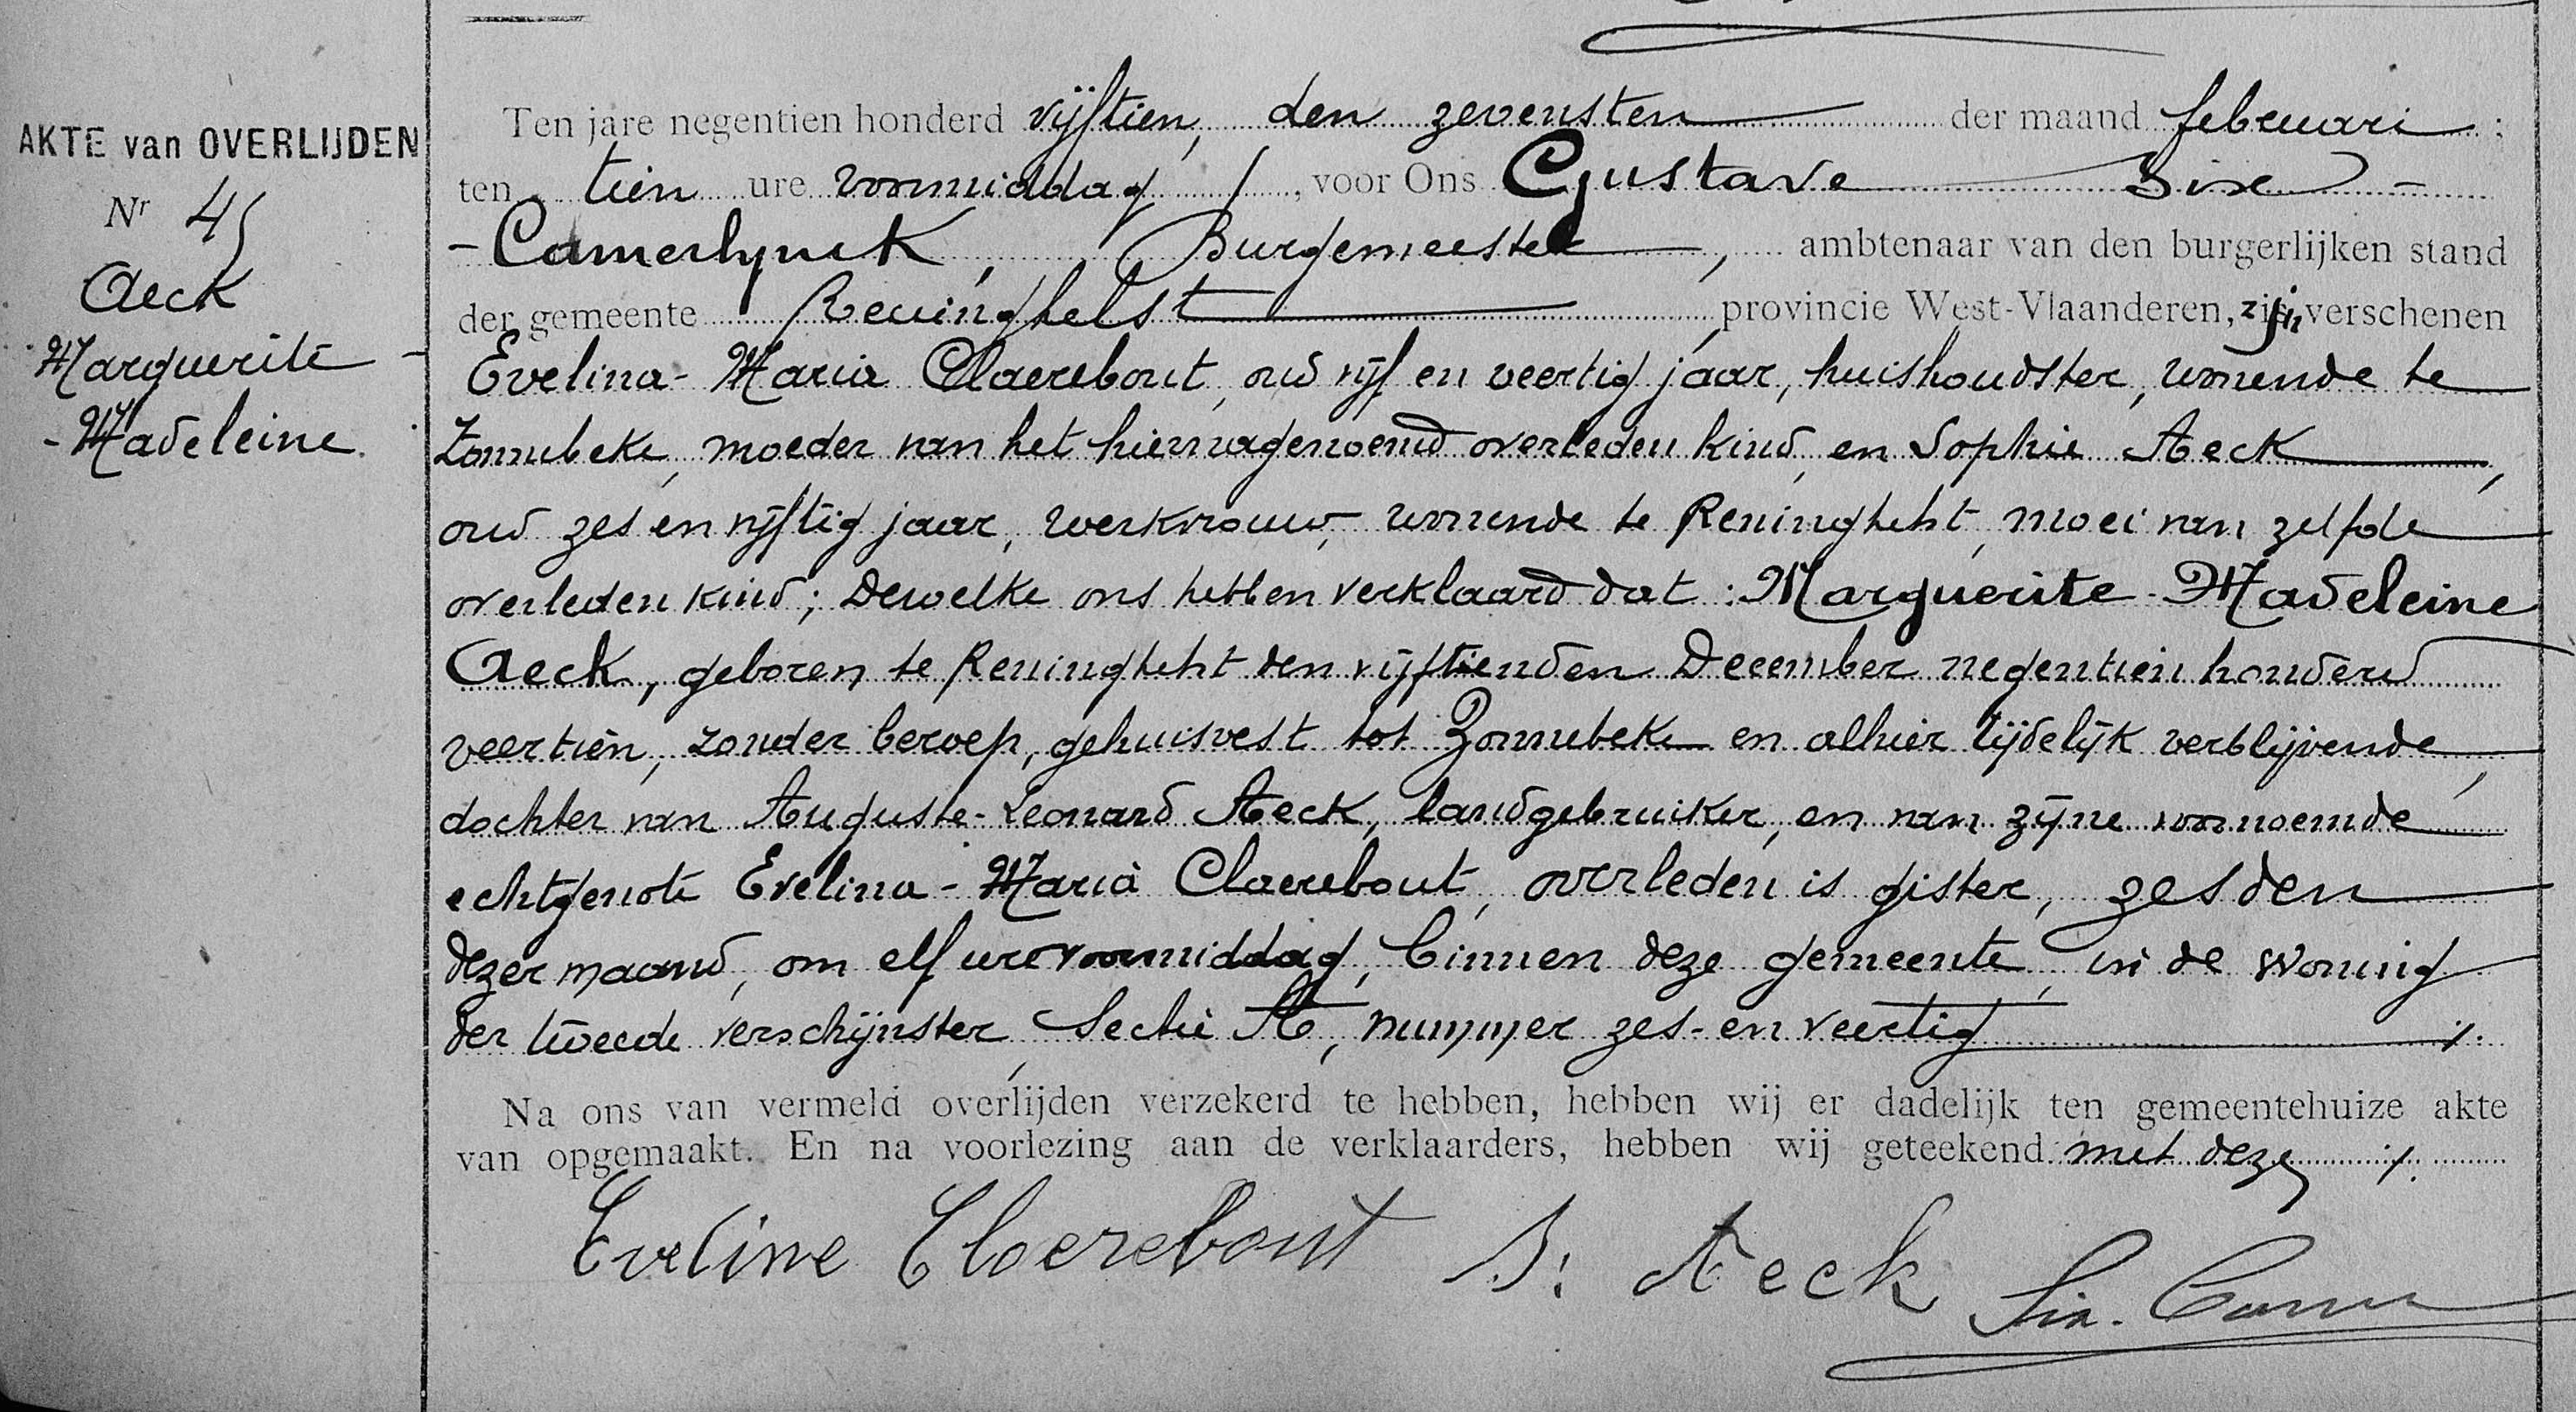 AKTE van OVERLIJDEN
Nr 45
Aeck
Marguerite -
- Madeleine.
Ten jare negentien honderd vijftien, den zevensten der maand februari ;
ten tien ure voormiddag /, voor Ons Gustave Sixe -
- Camerlynck, Burgemeester, ambtenaar van den burgerlijken stand
der gemeente Reninghelst, provincie West-Vlaanderen, zijn verschenen
Evelina-Maria Claerebout, oud vijf en veertig jaar, huishoudster, wonende te
Zonnebeke, moeder van het hiernagenoemd overleden kind, en Sophie Aeck,
oud zes en vijftig jaar, werkvrouw, wonende te Reninghelst, moei van zelfde
overleden kind; Dewelke ons hebben verklaard dat : Marguerite-Madeleine
Aeck, geboren te Reninghelst den vijftienden December negentien honderd
veertien, zonder beroep, gehuisvest tot Zonnebeke en alhier tijdelijk verblijvende,
dochter van Auguste-Leonard Aeck, landgebruiker, en van zijne voornoemde
echtgenote Evelina-Maria Claerebout, overleden is gister, zesden
dezer maand, om elf ure voormiddag, binnen deze gemeente, in de woning
der tweede verschijnster, Sectie A, nummer zes-en veertig ./.
Na ons van vermeld overlijden verzekerd te hebben, hebben wij er dadelijk ten gemeentehuize akte
van opgemaakt. En na voorlezing aan de verklaarders, hebben wij geteekend met deze ./.
Eveline Claerebout S: Aeck Six. Camer